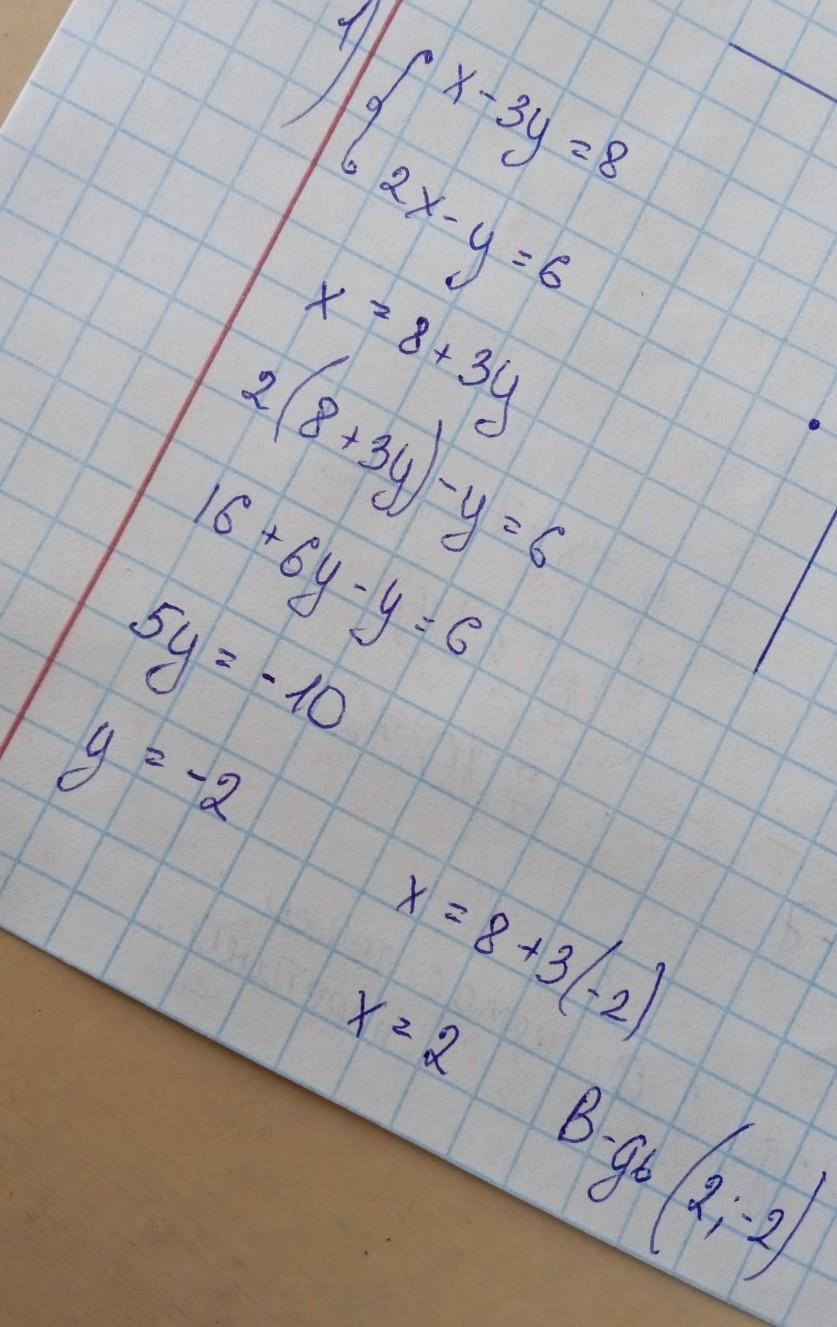 1) { x - 3y = 8
2x - y = 6
x = 8 + 3y
2(8 + 3y) - y = 6
16 + 6y - y = 6
5y = -10
y = -2
x = 8 + 3(-2)
x = 2
В-дь (2; -2)